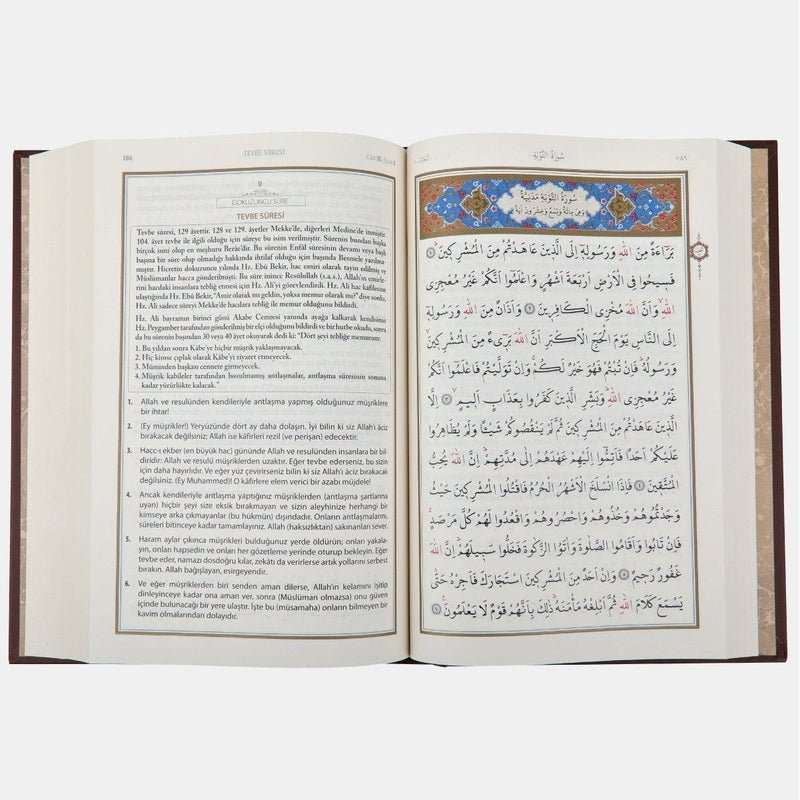 186
TEVBE SÛRESİ
9
DOKUZUNCU SÛRE
TEVBE SÛRESİ
Tevbe sûresi, 129 âyettir. 128 ve 129. âyetler Mekke'de, diğerleri Medine'de inmiştir.
104. âyet tevbe ile ilgili olduğu için sûreye bu isim verilmiştir. Sûrenin bundan başka
birçok ismi olup en meşhuru Berâe'dir. Bu sûrenin Enfâl sûresinin devamı veya başlı
başına bir sûre olup olmadığı hakkında ihtilaf olduğu için başında Besmele yazılmamıştır.
Hicretin dokuzuncu yılında Hz. Ebû Bekir, hac emiri olarak tayin edilmiş ve
Müslümanlar hacca gitmişlerdi. Bu sûre inince Resûlullah (s.a.s.), Allah'ın emirlerini
hardaki insanlara tebliğ etmesi için Hz. Ali'yi görevlendirdi. Hz. Ali hac kafilesine
ulaştığında Hz. Ebû Bekir, "Amir olarak mı geldin, yoksa memur olarak mı?" diye sordu,
Hz. Ali sadece sûreyi Mekke'de hacılara tebliğ ile memur olduğunu bildirdi.
Hz. Ali bayramın birinci günü Akabe Cemresi yanında ayağa kalkarak kendisinin
Hz. Peygamber tarafından gönderilmiş bir elçi olduğunu bildirdi ve bir hutbe okudu, sonra da
bu sûrenin başından 30 veya 40 âyet okuyarak dedi ki: "Dört şeyi tebliğe memurum:
1. Bu yıldan sonra Kâbe'ye hiçbir müşrik yaklaşmayacak.
2. Hiç kimse çıplak olarak Kâbe'yi ziyaret etmeyecek.
3. Müminden başkası cennete girmeyecek.
4. Müşrik kabileler tarafından bozulmamış antlaşmalar, antlaşma süresinin sonuna
kadar yürürlükte kalacak."
1. Allah ve resulünden kendileriyle antlaşma yapmış olduğunuz müşriklere
bir ihtar!
2. (Ey müşrikler!) Yeryüzünde dört ay daha dolaşın. İyi bilin ki siz Allah'ı âciz
bırakacak değilsiniz; Allah ise kâfirleri rezil (ve perişan) edecektir.
3. Hacc-ı ekber (en büyük hac) gününde Allah ve resulünden insanlara bir bil-
diridir: Allah ve resulü müşriklerden uzaktır. Eğer tevbe ederseniz, bu sizin
için daha hayırlıdır. Ve eğer yüz çevirirseniz bilin ki siz Allah'ı âciz bırakacak
değilsiniz. (Ey Muhammed!) O kâfirlere elem verici bir azabı müjdele!
4. Ancak kendileriyle antlaşma yaptığınız müşriklerden (antlaşma şartlarına
uyan) hiçbir şeyi size eksik bırakmayan ve sizin aleyhinize herhangi bir
kimseye arka çıkmayanlar (bu hükmün) dışındadır. Onların antlaşmalarını,
süreleri bitinceye kadar tamamlayınız. Allah (haksızlıktan) sakınanları sever.
5. Haram aylar çıkınca müşrikleri bulduğunuz yerde öldürün; onları yakala-
yın, onları hapsedin ve onları her gözetleme yerinde oturup bekleyin. Eğer
tevbe eder, namazı dosdoğru kılar, zekâtı da verirlerse artık yollarını serbest
bırakın. Allah bağışlayan, esirgeyendir.
6. Ve eğer müşriklerden biri senden aman dilerse, Allah'ın kelamını işitip
dinleyinceye kadar ona aman ver, sonra (Müslüman olmazsa) onu güven
içinde bulunacağı bir yere ulaştır. İşte bu (müsamaha) onların bilmeyen bir
kavim olmalarından dolayıdır.
سُورَةُ التَّوْبَةِ
١٨٦
سُورَةُ التَّوْبَةِ مَدَنِيَّةٌ
وَهِيَ مِائَةٌ وَتِسْعٌ وَعِشْرُونَ اٰيَةً
بَرَٓاءَةٌ مِنَ اللّٰهِ وَرَسُولِهٖٓ اِلَى الَّذٖينَ عَاهَدْتُمْ مِنَ الْمُشْرِكٖينَ ١
فَسٖيحُوا فِي الْاَرْضِ اَرْبَعَةَ اَشْهُرٍ وَاعْلَمُٓوا اَنَّكُمْ غَيْرُ مُعْجِزِي
اللّٰهِ وَاَنَّ اللّٰهَ مُخْزِي الْكَافِرٖينَ ٢ وَاَذَانٌ مِنَ اللّٰهِ وَرَسُولِهٖٓ
اِلَى النَّاسِ يَوْمَ الْحَجِّ الْاَكْبَرِ اَنَّ اللّٰهَ بَرٖٓيءٌ مِنَ الْمُشْرِكٖينَ
وَرَسُولُهُ فَاِنْ تُبْتُمْ فَهُوَ خَيْرٌ لَكُمْ وَاِنْ تَوَلَّيْتُمْ فَاعْلَمُٓوا اَنَّكُمْ
غَيْرُ مُعْجِزِي اللّٰهِ وَبَشِّرِ الَّذٖينَ كَفَرُوا بِعَذَابٍ اَلٖيمٍ ٣ اِلَّا
الَّذٖينَ عَاهَدْتُمْ مِنَ الْمُشْرِكٖينَ ثُمَّ لَمْ يَنْقُصُوكُمْ شَيْـًٔا وَلَمْ يُظَاهِرُوا
عَلَيْكُمْ اَحَدًا فَاَتِمُّٓوا اِلَيْهِمْ عَهْدَهُمْ اِلٰى مُدَّتِهِمْ اِنَّ اللّٰهَ يُحِبُّ
الْمُتَّقٖينَ ٤ فَاِذَا انْسَلَخَ الْاَشْهُرُ الْحُرُمُ فَاقْتُلُوا الْمُشْرِكٖينَ حَيْثُ
وَجَدْتُمُوهُمْ وَخُذُوهُمْ وَاحْصُرُوهُمْ وَاقْعُدُوا لَهُمْ كُلَّ مَرْصَدٍ
فَاِنْ تَابُوا وَاَقَامُوا الصَّلٰوةَ وَاٰتَوُا الزَّكٰوةَ فَخَلُّوا سَبٖيلَهُمْ اِنَّ اللّٰهَ
غَفُورٌ رَحٖيمٌ ٥ وَاِنْ اَحَدٌ مِنَ الْمُشْرِكٖينَ اسْتَجَارَكَ فَاَجِرْهُ حَتّٰى
يَسْمَعَ كَلَامَ اللّٰهِ ثُمَّ اَبْلِغْهُ مَأْمَنَهُ ذٰلِكَ بِاَنَّهُمْ قَوْمٌ لَا يَعْلَمُونَ ٦